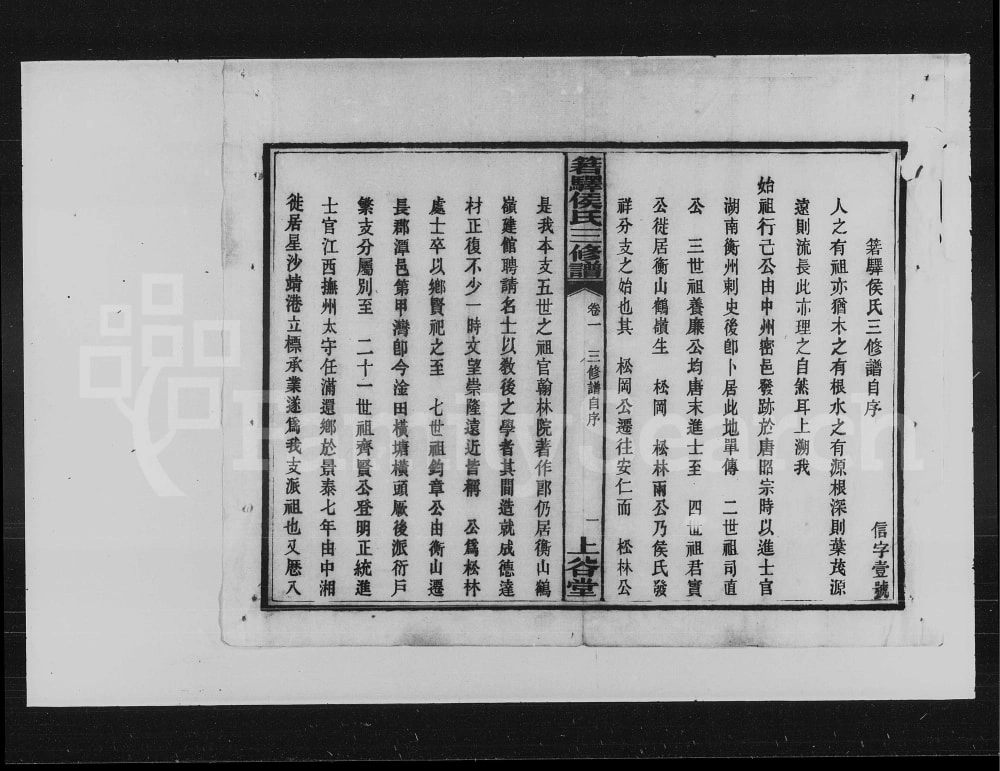 箬驛侯氏三修譜自序 信字壹號
人之有祖亦猶木之有根水之有源根深則葉茂源
遠則流長此亦理之自然耳上溯我
始祖行己公由中州密邑發跡於唐昭宗時以進士官
湖南衡州刺史後卽卜居此地單傳 二世祖司直
公 三世祖養廉公均唐末進士至 四世祖君實
公徙居衡山鶴嶺生 松岡 松林兩公乃侯氏發
祥分支之始也其 松岡公遷往安仁而 松林公
箬驛侯氏三修譜 卷一 三修譜自序 一 上谷堂
是我本支五世之祖官翰林院著作郎仍居衡山鶴
嶺建館聘請名士以教後之學者其間造就成德達
材正復不少一時文望崇隆遠近皆稱 公爲松林
處士卒以鄉賢祀之至 七世祖鈞章公由衡山遷
長郡潭邑第甲灣卽今淦田橫塘橫頭厥後派衍戶
繁支分屬別至 二十一世祖齊賢公登明正統進
士官江西撫州太守任滿還鄉於景泰七年由中湘
徙居星沙蜻港立標承業遂爲我支派祖也又歷入
FamilySearch